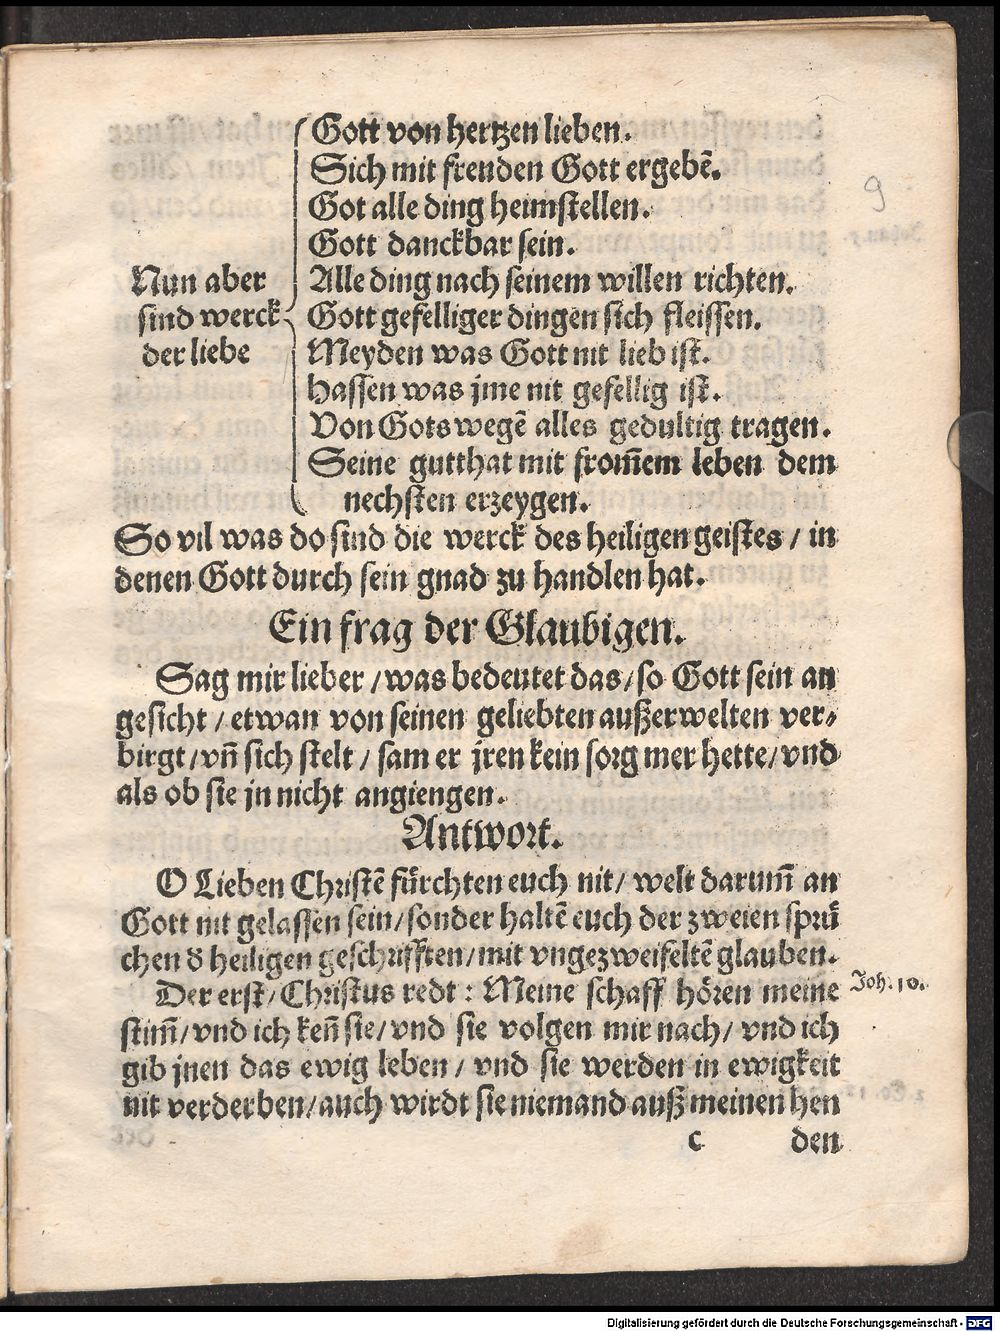 Gott von hertzen lieben.
Sich mit freuden Gott ergebẽ.
Got alle ding heimstellen.
Gott danckbar sein.
Nun aber
sind werck
der liebe
Alle ding nach seinem willen richten.
Gott gefelliger dingen sich fleissen.
Meyden was Gott nit lieb ist.
Hassen was jme nit gefellig ist.
Von Gots wegẽ alles gedultig tragen.
Seine gutthat mit from̃em leben dem
nechsten erzeygen.
So vil was do sind die werck des heiligen geistes / in
denen Gott durch sein gnad zu handlen hat.
Ein frag der Glaubigen.
Sag mir lieber / was bedeutet das / so Gott sein an
gesicht / etwan von seinen geliebten außerwelten ver⸗
birgt / vñ sich stelt / sam er jren kein sorg mer hette / vnd
als ob sie jn nicht angiengen.
Antwort.
O Lieben Christẽ fürchten euch nit / welt darum̃ an
Gott nit gelassen sein / sonder haltẽ euch der zweien sprü
chen d heiligen geschrifften / mit vngezweifeltẽ glauben.
Der erst / Christus redt : Meine schaff hören meine
stim̃ / vnd ich keñ sie / vnd sie volgen mir nach / vnd ich
gib jnen das ewig leben / vnd sie werden in ewigkeit
nit verderben / auch wirdt sie niemand auß meinen hen
Joh. 10.
c den
9
Digitalisierung gefördert durch die Deutsche Forschungsgemeinschaft - DFG